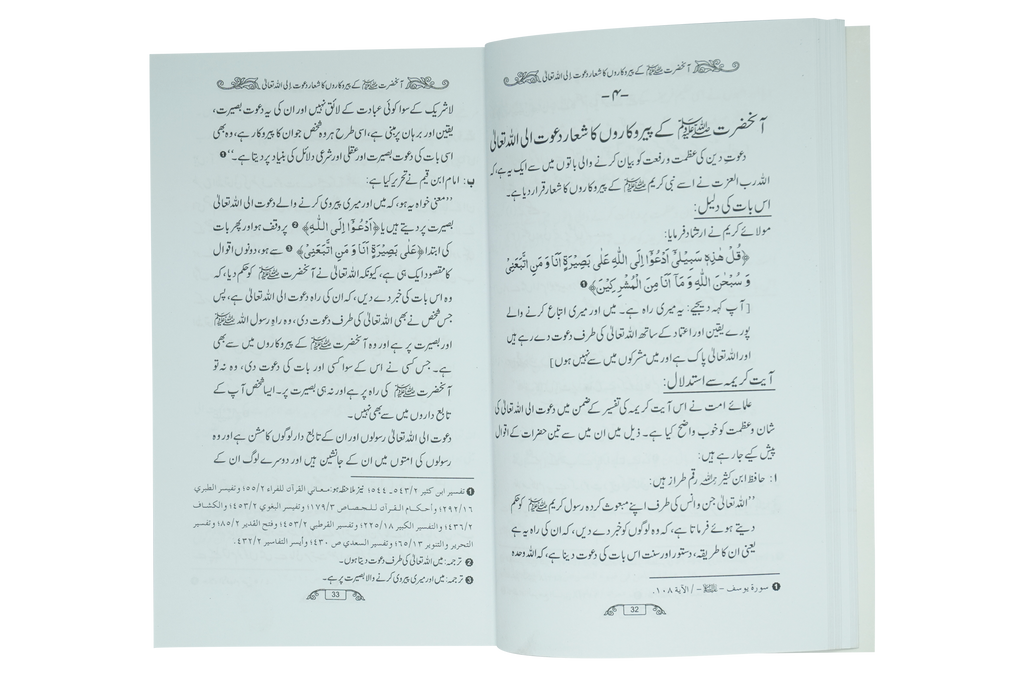 آنحضرت ﷺ کے پیروکاروں کا شعار دعوت إلی اللہ تعالیٰ
-۴-
آنحضرت ﷺ کے پیروکاروں کا شعار دعوت الی اللہ تعالیٰ
دعوتِ دین کی عظمت و رفعت کو بیان کرنے والی باتوں میں سے ایک یہ ہے، کہ
اللہ رب العزت نے اسے نبی کریم ﷺ کے پیروکاروں کا شعار قرار دیا ہے۔
اس بات کی دلیل:
مولائے کریم نے ارشاد فرمایا:
﴿قُلْ هٰذِهٖ سَبِيْلِيْٓ اَدْعُوْٓا اِلَى اللّٰهِ عَلٰى بَصِيْرَةٍ اَنَا وَ مَنِ اتَّبَعَنِيْ
وَ سُبْحٰنَ اللّٰهِ وَ مَآ اَنَا مِنَ الْمُشْرِكِيْنَ﴾ ❶
[آپ کہہ دیجیے: یہ میری راہ ہے۔ میں اور میری اتباع کرنے والے
پورے یقین اور اعتماد کے ساتھ اللہ تعالیٰ کی طرف دعوت دے رہے ہیں
اور اللہ تعالیٰ پاک ہے اور میں مشرکوں میں سے نہیں ہوں]
آیت کریمہ سے استدلال:
علمائے امت نے اس آیت کریمہ کی تفسیر کے ضمن میں دعوت الی اللہ تعالیٰ کی
شان و عظمت کو خوب واضح کیا ہے۔ ذیل میں ان میں سے تین حضرات کے اقوال
پیش کیے جا رہے ہیں:
۱: حافظ ابن کثیر رحمہ اللہ رقم طراز ہیں:
’’اللہ تعالیٰ جن و انس کی طرف اپنے مبعوث کردہ رسول کریم ﷺ کو حکم
دیتے ہوئے فرماتا ہے، کہ وہ لوگوں کو خبر دے دیں، کہ ان کی راہ یہ ہے
یعنی ان کا طریقہ، دستور اور سنت اس بات کی دعوت دینا ہے، کہ اللہ وحدہ
❶ سورة یوسف - علیہ السلام - / الآية ١٠٨.
32
آنحضرت ﷺ کے پیروکاروں کا شعار دعوت إلی اللہ تعالیٰ
لاشریک کے سوا کوئی عبادت کے لائق نہیں اور ان کی یہ دعوت بصیرت،
یقین اور برہان پر مبنی ہے، اسی طرح ہر وہ شخص جو ان کا پیروکار ہے، وہ بھی
اسی بات کی دعوت بصیرت اور عقلی اور شرعی دلائل کی بنیاد پر دیتا ہے۔‘‘ ❶
ب: امام ابن قیم نے تحریر کیا ہے:
’’معنی خواہ یہ ہو، کہ میں اور میری پیروی کرنے والے دعوت الی اللہ تعالیٰ
بصیرت پر دیتے ہیں یا ﴿اَدْعُوْٓا اِلَى اللّٰهِ﴾ ❷ پر وقف ہو اور پھر بات
کی ابتدا ﴿عَلٰى بَصِيْرَةٍ اَنَا وَ مَنِ اتَّبَعَنِيْ﴾ ❸ سے ہو، دونوں اقوال
کا مقصود ایک ہی ہے، کیونکہ اللہ تعالیٰ نے آنحضرت ﷺ کو حکم دیا، کہ
وہ اس بات کی خبر دے دیں، کہ ان کی راہ دعوت الی اللہ تعالیٰ ہے، پس
جس شخص نے بھی اللہ تعالیٰ کی طرف دعوت دی، وہ راہِ رسول اللہ ﷺ
اور بصیرت پر ہے اور وہ آنحضرت ﷺ کے پیروکاروں میں سے بھی
ہے۔ جس کسی نے اس کے سوا کسی اور بات کی دعوت دی، وہ نہ تو
آنحضرت ﷺ کی راہ پر ہے اور نہ ہی بصیرت پر۔ ایسا شخص آپ کے
تابع داروں میں سے بھی نہیں۔
دعوت الی اللہ تعالیٰ رسولوں اور ان کے تابع دار لوگوں کا مشن ہے اور وہ
رسولوں کی امتوں میں ان کے جانشین ہیں اور دوسرے لوگ ان کے
❶ تفسیر ابن کثیر ٥٤٣/٢ ـ ٥٤٤؛ نیز ملاحظہ ہو: معاني القرآن للفراء ٥٥/٢؛ وتفسير الطبري
٢٩٢/١٦؛ وأحكام القرآن للجصاص ١٧٩/٣؛ وتفسير البغوي ٤٥٣/٢؛ والكشاف
٤٣٦/٢؛ والتفسير الكبير ٢٢٥/١٨؛ وتفسير القرطبي ٤٥٣/٢؛ وفتح القدير ٨٥/٢؛ وتفسير
التحرير والتنوير ٦٥/١٣؛ وتفسير السعدي ص ٤٣٠؛ وأيسر التفاسير ٤٣٢/٢.
❷ ترجمہ: میں اللہ تعالیٰ کی طرف دعوت دیتا ہوں۔
❸ ترجمہ: میں اور میری پیروی کرنے والا بصیرت پر ہے۔
33